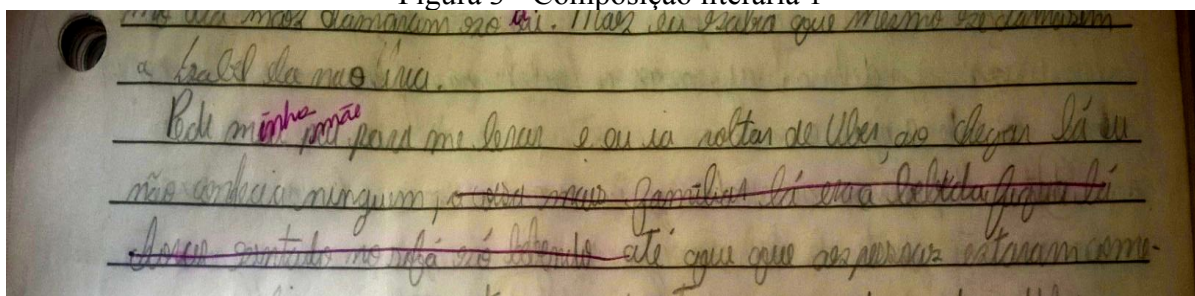 Figura 3 - Composição literária 1
mais chamaram eu vi. Mais eu sabia que mesmo se chamasem
a Isabel ela nao iria.
Pedi minha mãe para me levar e eu ia voltar de Uber, ao chegar lá eu
não conhecia ninguem, a coisa mais familiar lá era a bebida fiquei lá
sentado no sofá só bebendo até que que as pessoas estavam come-